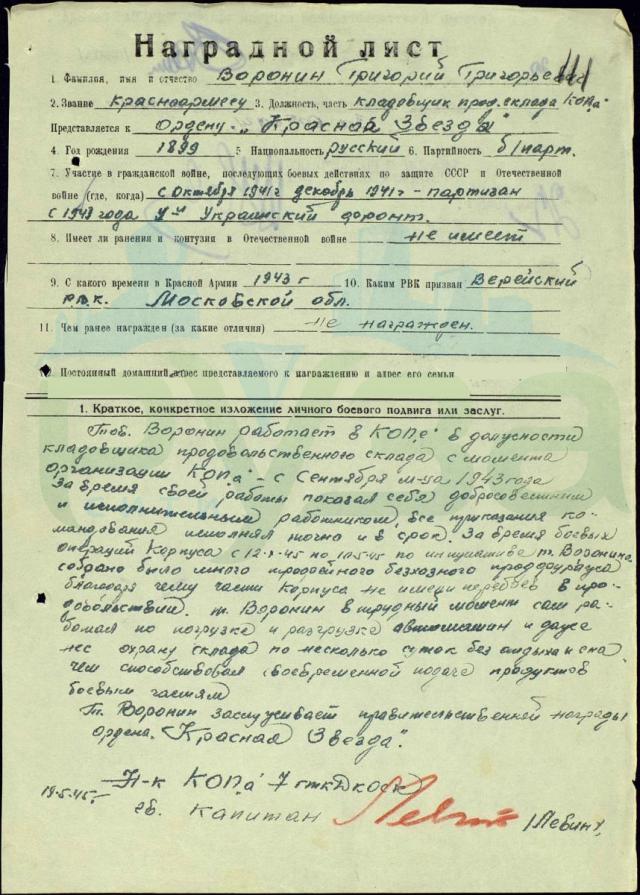 Наградной лист
1. Фамилия, имя и отчество Воронин Григорий Григорьевич
2. Звание красноармеец 3. Должность, часть кладовщик прод. склада КОП,а
Представляется к Ордену „Красная Звезда"
4. Год рождения 1899 5 Национальность русский 6. Партийность б/парт.
7. Участие в гражданской войне, последующих боевых действиях по защите СССР и Отечественной
войне (где, когда) с октября 1941г декабрь 1941г - партизан
с 1943 года Украинский фронт.
8. Имеет ли ранения и контузии в Отечественной войне не имеет
9. С какого времени в Красной Армии 1943 г 10. Каким РВК призван Верейский
р.в.к. Московской обл.
11. Чем ранее награжден (за какие отличия) не награжден.
12. Постоянный домашний адрес представляемого к награждению и адрес его семьи
1. Краткое, конкретное изложение личного боевого подвига или заслуг.
Тов. Воронин работает в КОП,е в должности
кладовщика продовольственного склада с момента
организации КОП,а - с Сентября м-ца 1943 года
За время своей работы показал себя добросовестным
и исполнительным работником, все приказания ко-
мандования исполнял точно и в срок. За время боевых
операций Корпуса с по инициативе т. Воронина
собрано было много трофейного продфуража
благодаря чему части Корпуса не имели перебоев в про-
довольствии. т. Воронин в трудный момент сам ра-
ботал по погрузке и разгрузке автомашин и даже
нес охрану склада по несколько суток без отдыха и сна
чем способствовал своевременной подаче продуктов
боевым частям
Т. Воронин заслуживает правительственной награды
ордена „Красная Звезда".
Н-к КОП,а 7 гткДкоск
19.5.45г. гв. капитан /Левин/